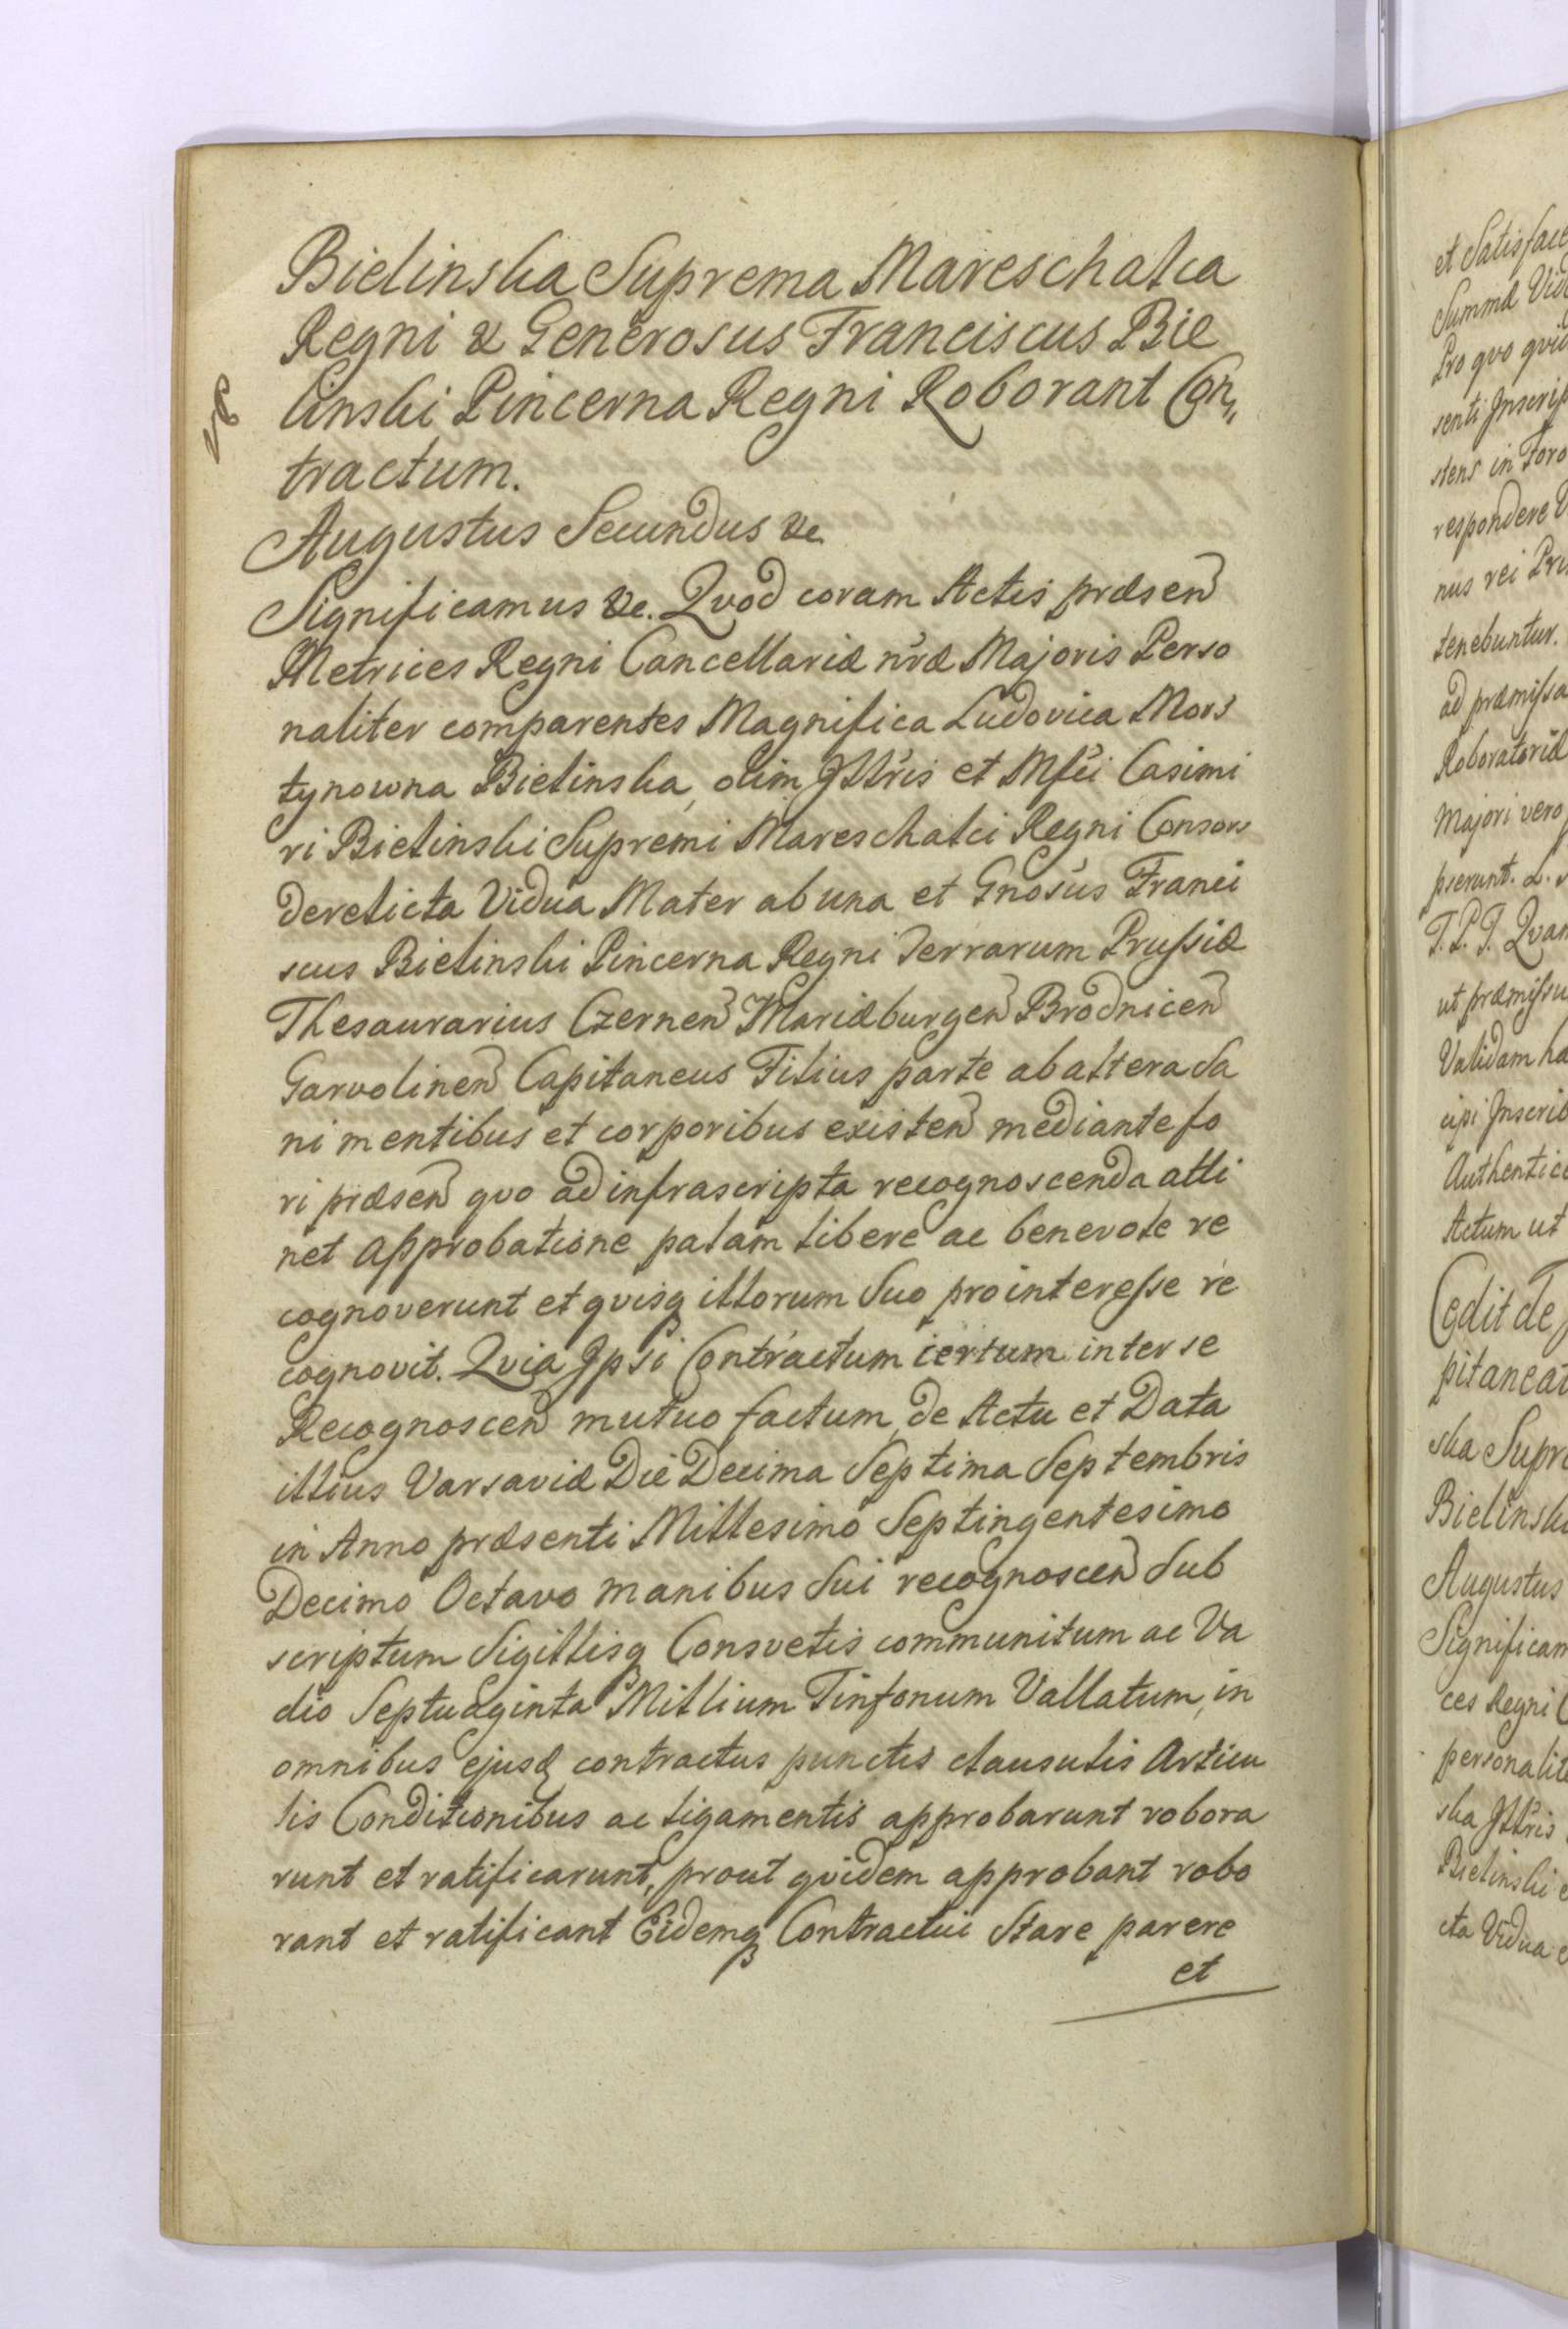 Bielinska Suprema Mareschalca
Regni & Generosus Franciscus Bie
linski Pincerna Regni Roborant Con„
tractum.
Augustus Secundus &c
Significamus &c. Qvod coram Actis præsen̄
Metrices Regni Cancellariæ nr̄æ Majoris Perso
naliter comparentes Magnifica Ludovica Mors
tynowna Bielinska, olim Jllr̄is et Mfci Casimi
ri Bielinski Supremi Mareschalci Regni Consors
derelicta Vidua Mater ab una et Gnosus Franci
scus Bielinski Pincerna Regni Terrarum Prussiæ
Thesaurarius Czernen̄ Mariæburgen̄ Brodnicen̄
Garvolinen̄ Capitaneus Filius parte ab altera Sa
ni mentibus et corporibus existen̄ mediante fo
ri præsen̄ qvo ad infrascripta recognoscenda atti
net approbatione palam libere ac benevole re
cognoverunt et qvisq illorum Suo pro interesse re
cognovit. Qvia Jpsi Contractum certum inter se
Recognoscen̄ mutuo factum, de Actu et Data
illius Varsaviæ Die Decima Septima Septembris
in Anno præsenti Millesimo Septingentesimo
Decimo Octavo manibus Sui recognoscen̄ Sub
scriptum Sigillisq Consvetis communitum ac Va
dio Septuaginta Millium Tinfonum Vallatum, in
omnibus ejusd contractus punctis clausulis Articu
lis Conditionibus ac ligamentis approbarunt robora
runt et ratificarunt, prout qvidem approbant robo
rant et ratificant Eidemq Contractui Stare parere
et
et Satisfac
Summæ Vid
Pro qvo qvi
senti Jnscrip
stens in Foro
respondere
nus rei
tenebuntur.
ad præmissa
Roboratoriæ
Majori vero
pserunt. L.
T. P. T. Qvan
ut præmissu
Validam ha
cipi Jnscrib
Authentice
Actum ut
Cedit de
pitaneat
ska Supre
Bielinsk
Augustus
Significam
ces Regni C
personalite
ska Jllr̄is
Bielinski
cta Vidua